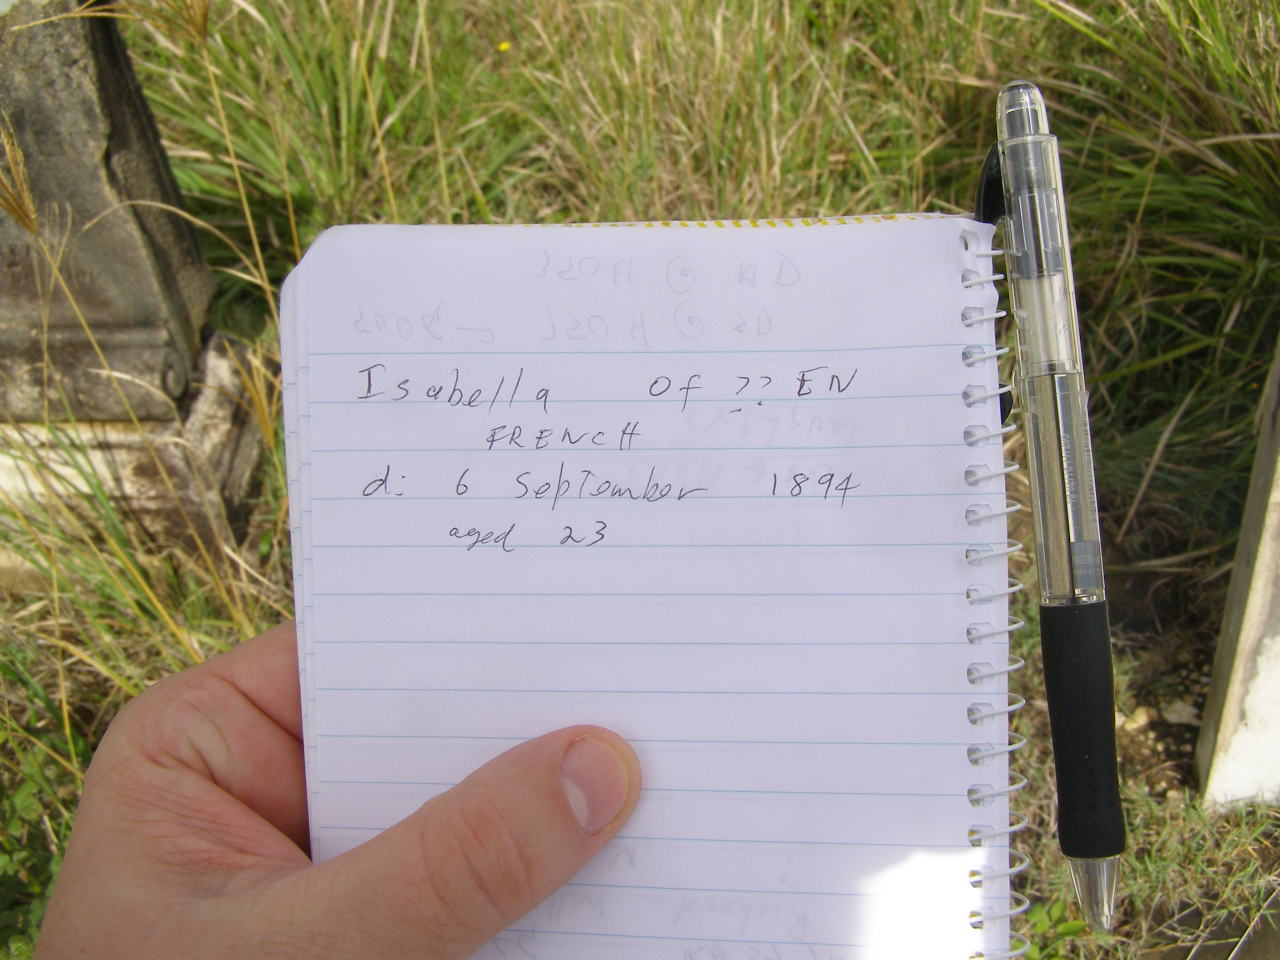 Isabella of ?? EN
FRENCH
d: 6 September 1894
aged 23